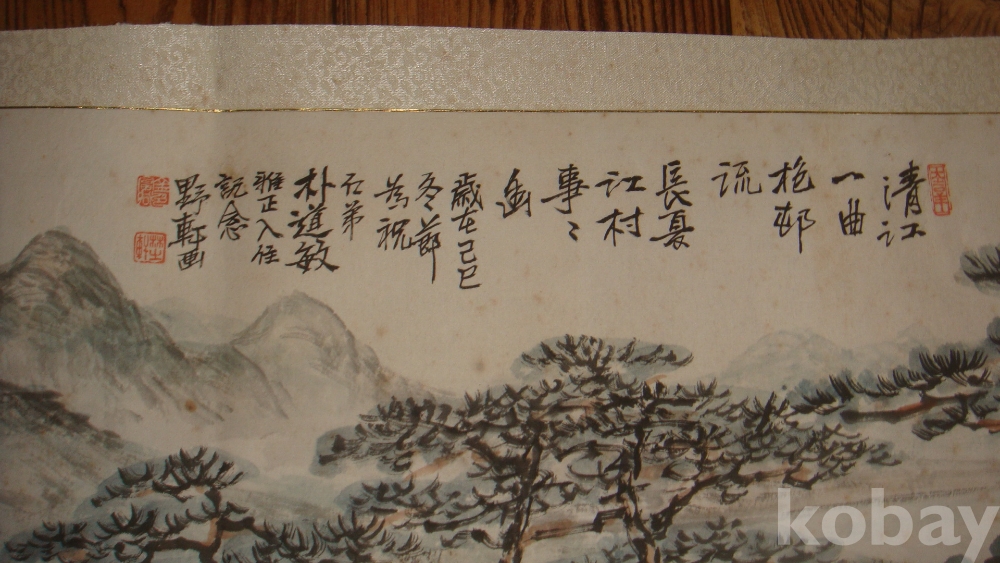 清江
一曲
抱邨
流
長夏
江村
事〻
幽
歲在己巳
冬節
为祝
仁弟
朴道敏
雅正入住
記念
野軒画
kobay